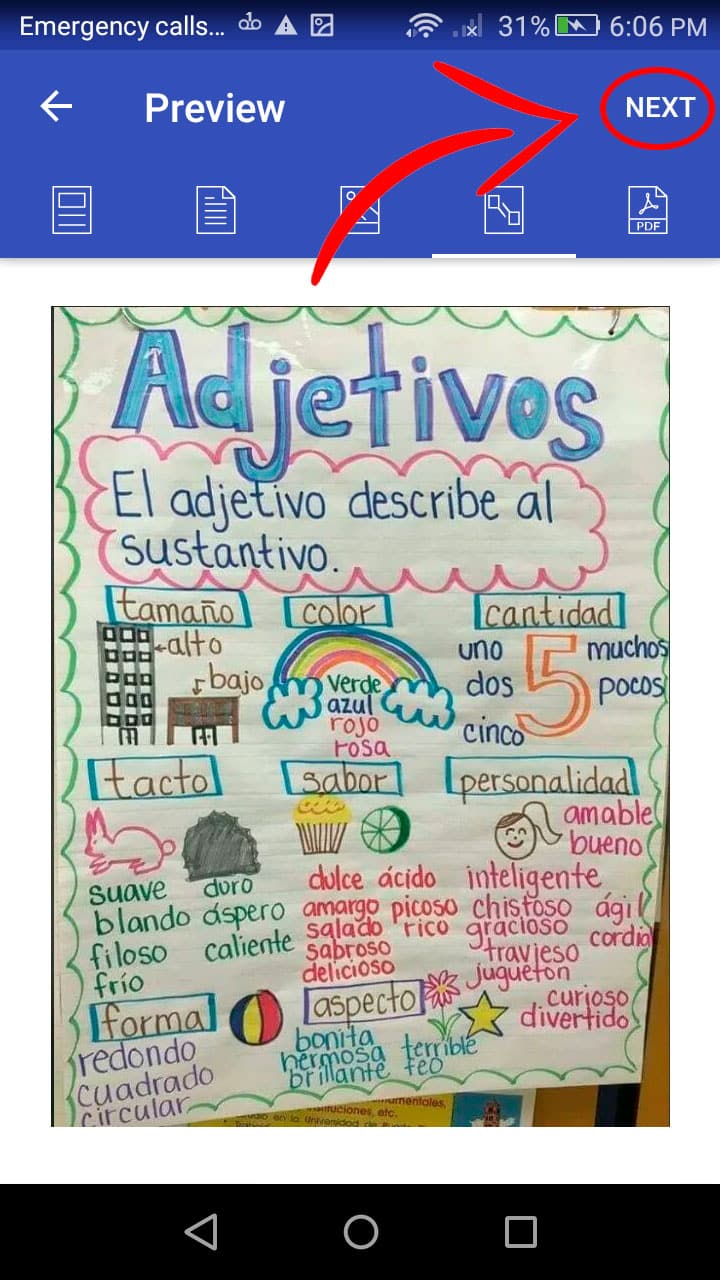 Emergency calls... 31% 6:06 PM
Preview NEXT
PDF
Adjetivos
El adjetivo describe al
sustantivo.
tamaño
alto
bajo
color
verde
azul
rojo
rosa
cantidad
uno
dos
cinco
5
muchos
pocos
tacto
suave duro
blando áspero
filoso caliente
frío
sabor
dulce ácido
amargo picoso
salado rico
sabroso
delicioso
personalidad
amable
bueno
inteligente
chistoso ágil
gracioso cordial
travieso
juguetón
curioso
divertido
forma
redondo
cuadrado
circular
aspecto
bonita
hermosa terrible
brillante feo
etc.
en la Universidad de